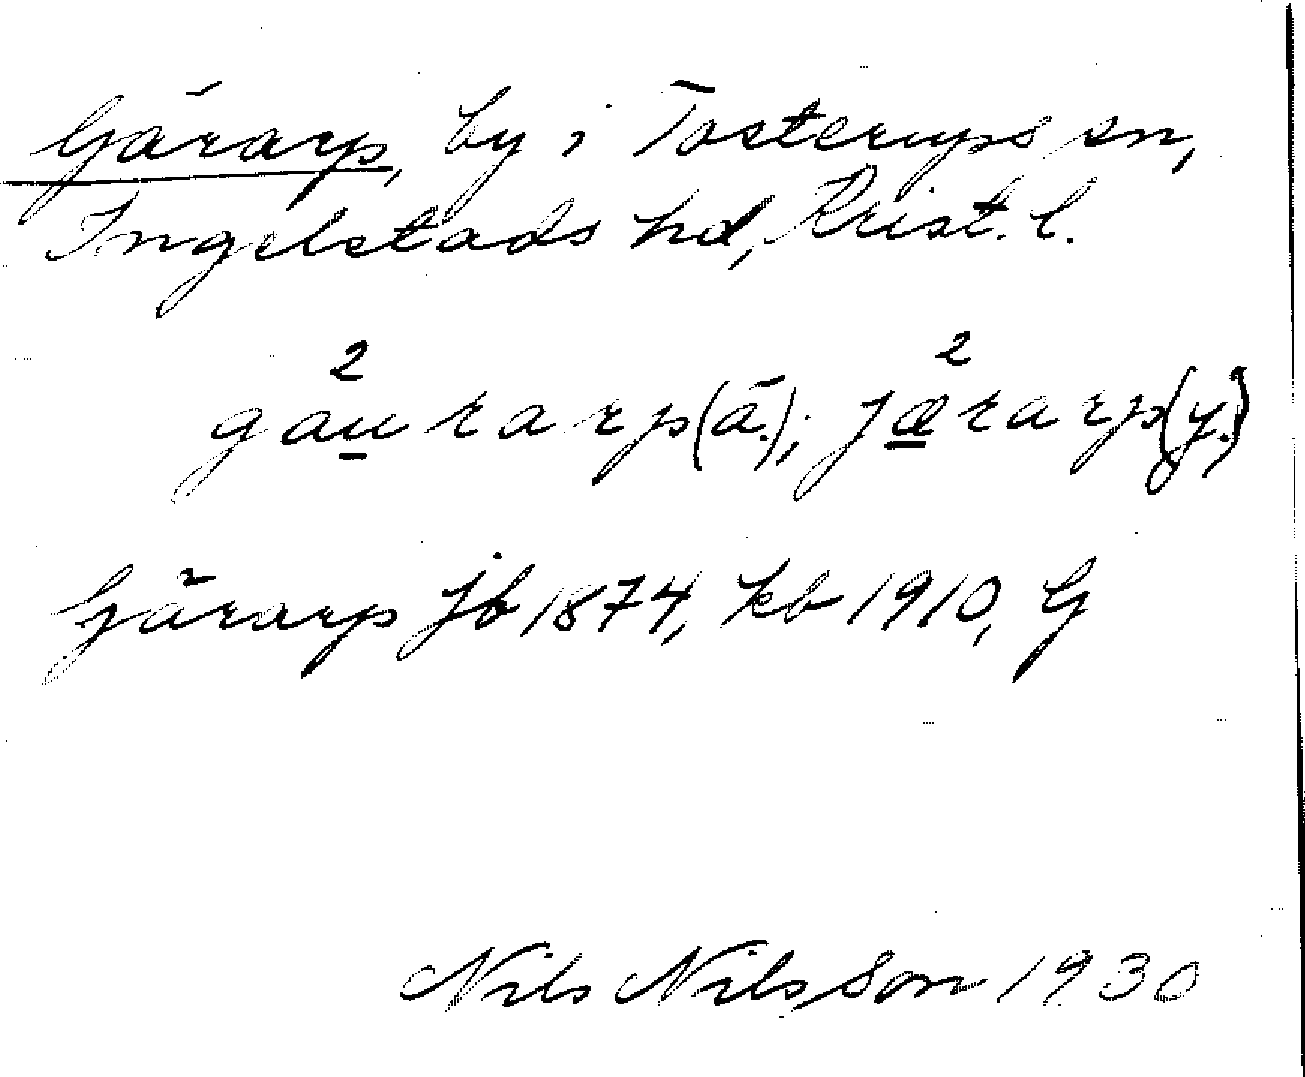 Gärarp, by i Tosterups sn,
Ingelstads hd, Krist. l.
2 2
gaurarp (ä.); jærarp (y.)
Gärarp Jb 1874, kb 1910, G
Nils Nilsson 1930